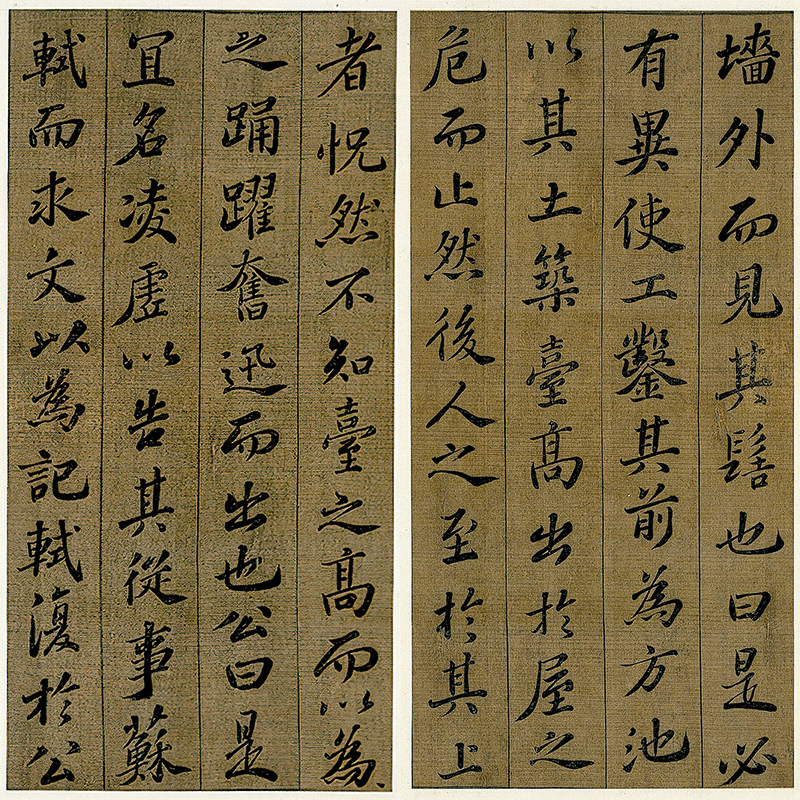 墻外而見其髻也曰是必
有異使工鑿其前為方池
以其土築臺高出於屋之
危而止然後人之至於其上
者怳然不知臺之高而以為
之踊躍奮迅而出也公曰是
宜名凌虛以告其從事蘇
軾而求文以為記軾復於公